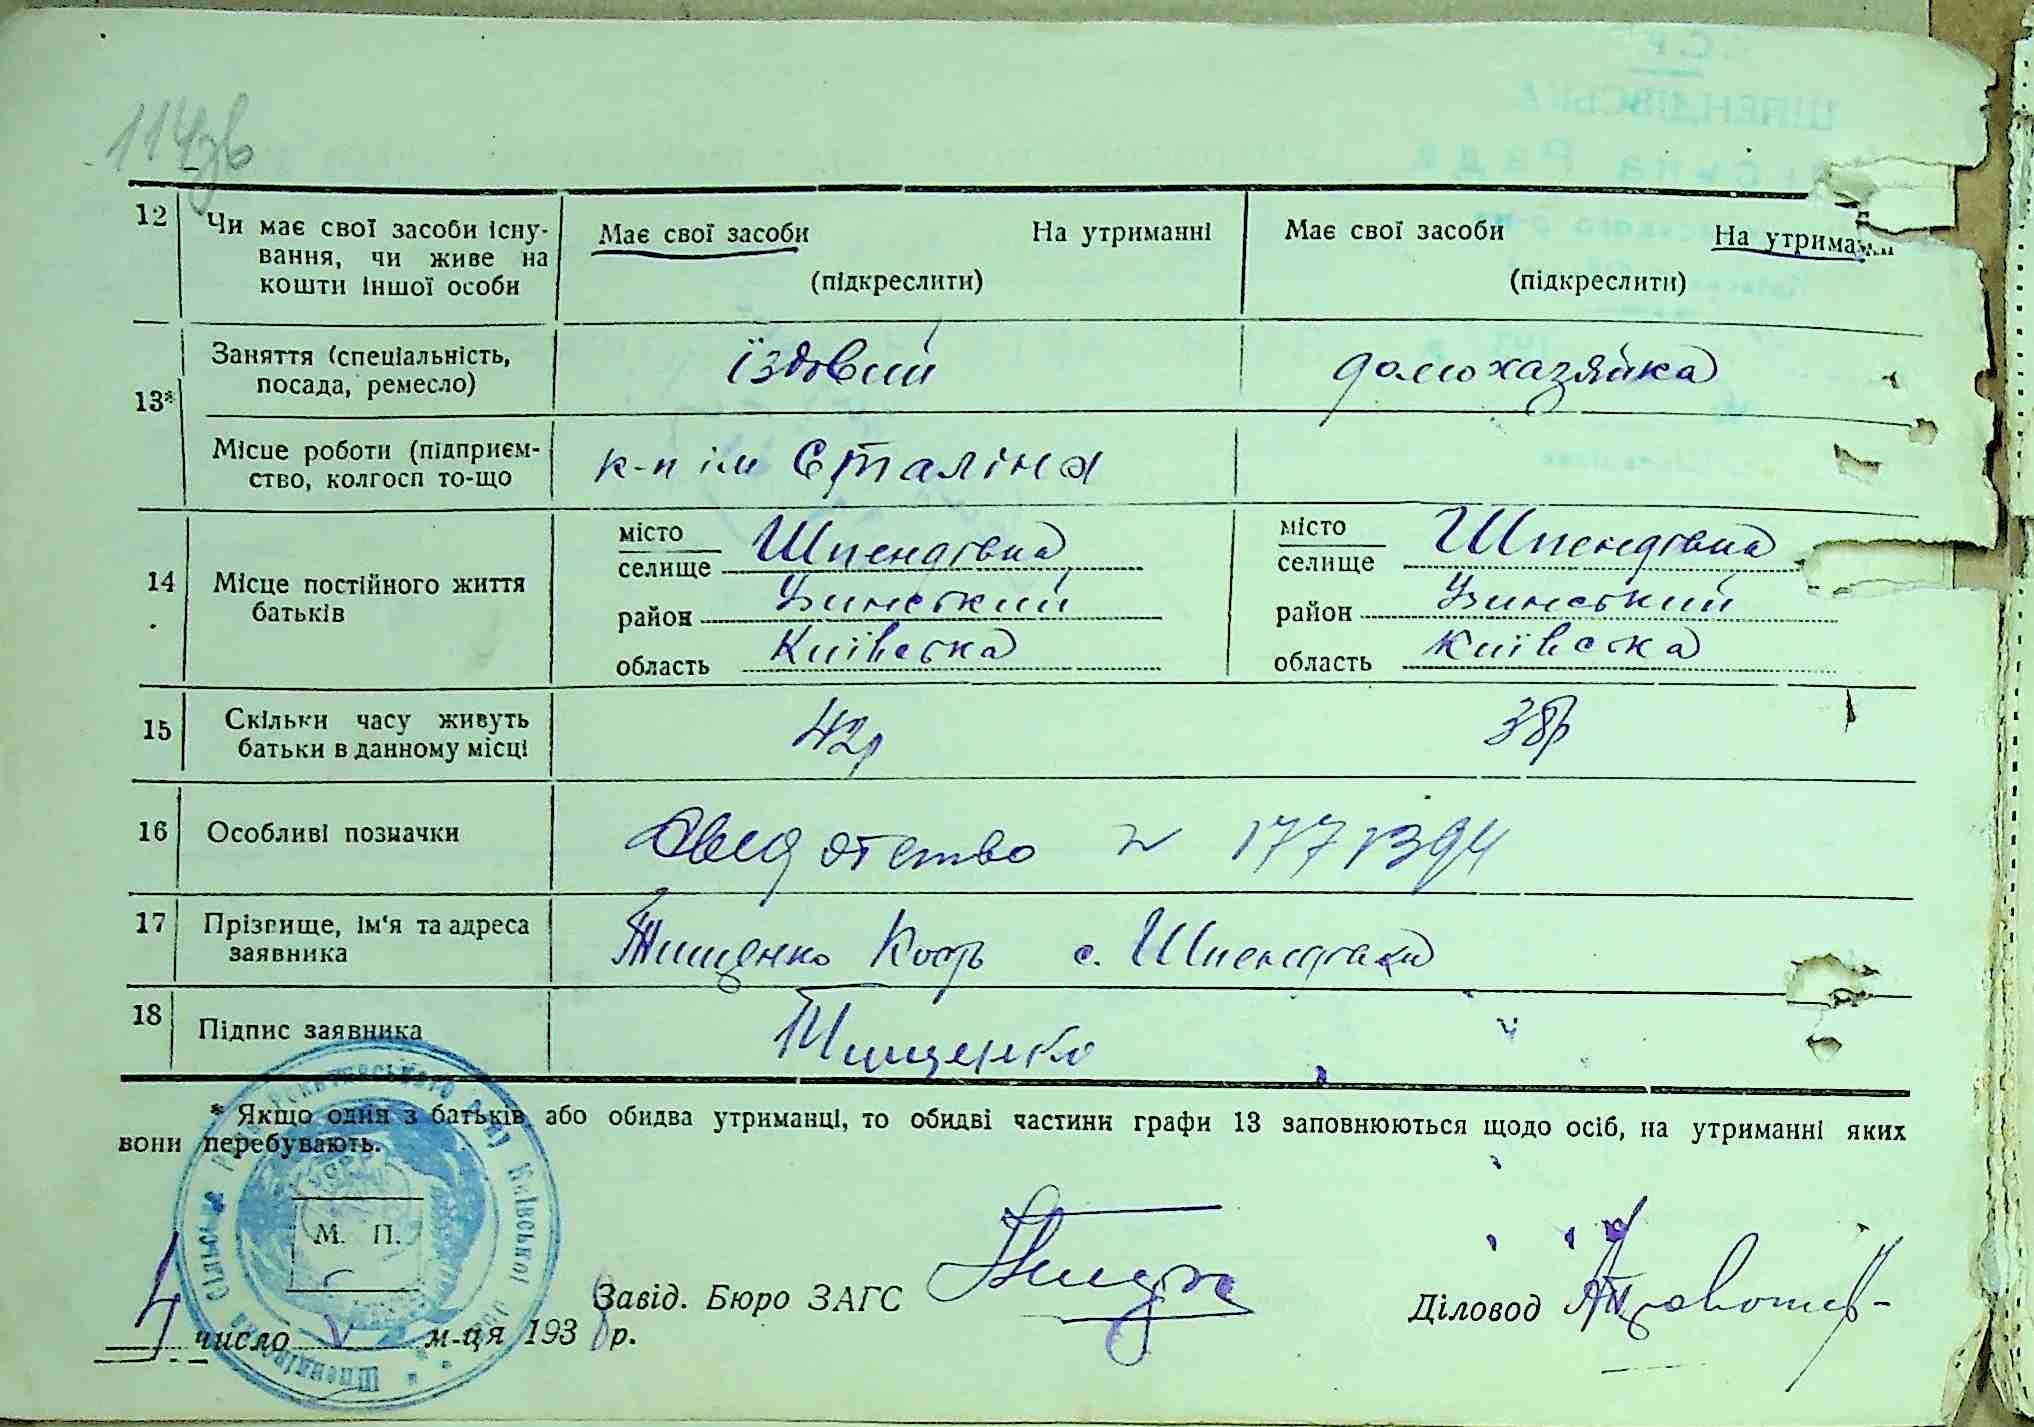 114зв
12 Чи має свої засоби існу- Має свої засоби На утриманні Має свої засоби На утриманні
вання, чи живе на
кошти іншої особи (підкреслити) (підкреслити)
13* Заняття (спеціальність, їздовий домохазяйка
посада, ремесло)
Місце роботи (підприєм- к-п ім Сталіна
ство, колгосп то-що
14 Місце постійного життя батьків
місто Шпендівка місто Шпендівка
селище селище
район Узинський район Узинський
область Київська область Київська
15 Скільки часу живуть 42р 38р
батьки в данному місці
16 Особливі позначки Свидотство N 1771394
17 Прізвище, ім‘я та адреса Тищенко Кость с. Шпендівка
заявника
18 Підпис заявника Тищенко
* Якщо один з батьків або обидва утриманці, то обидві частини графи 13 заповнюються щодо осіб, на утриманні яких
вони перебувають.
М. П.
Завід. Бюро ЗАГС Діловод
4 число V м-ця 1938р.